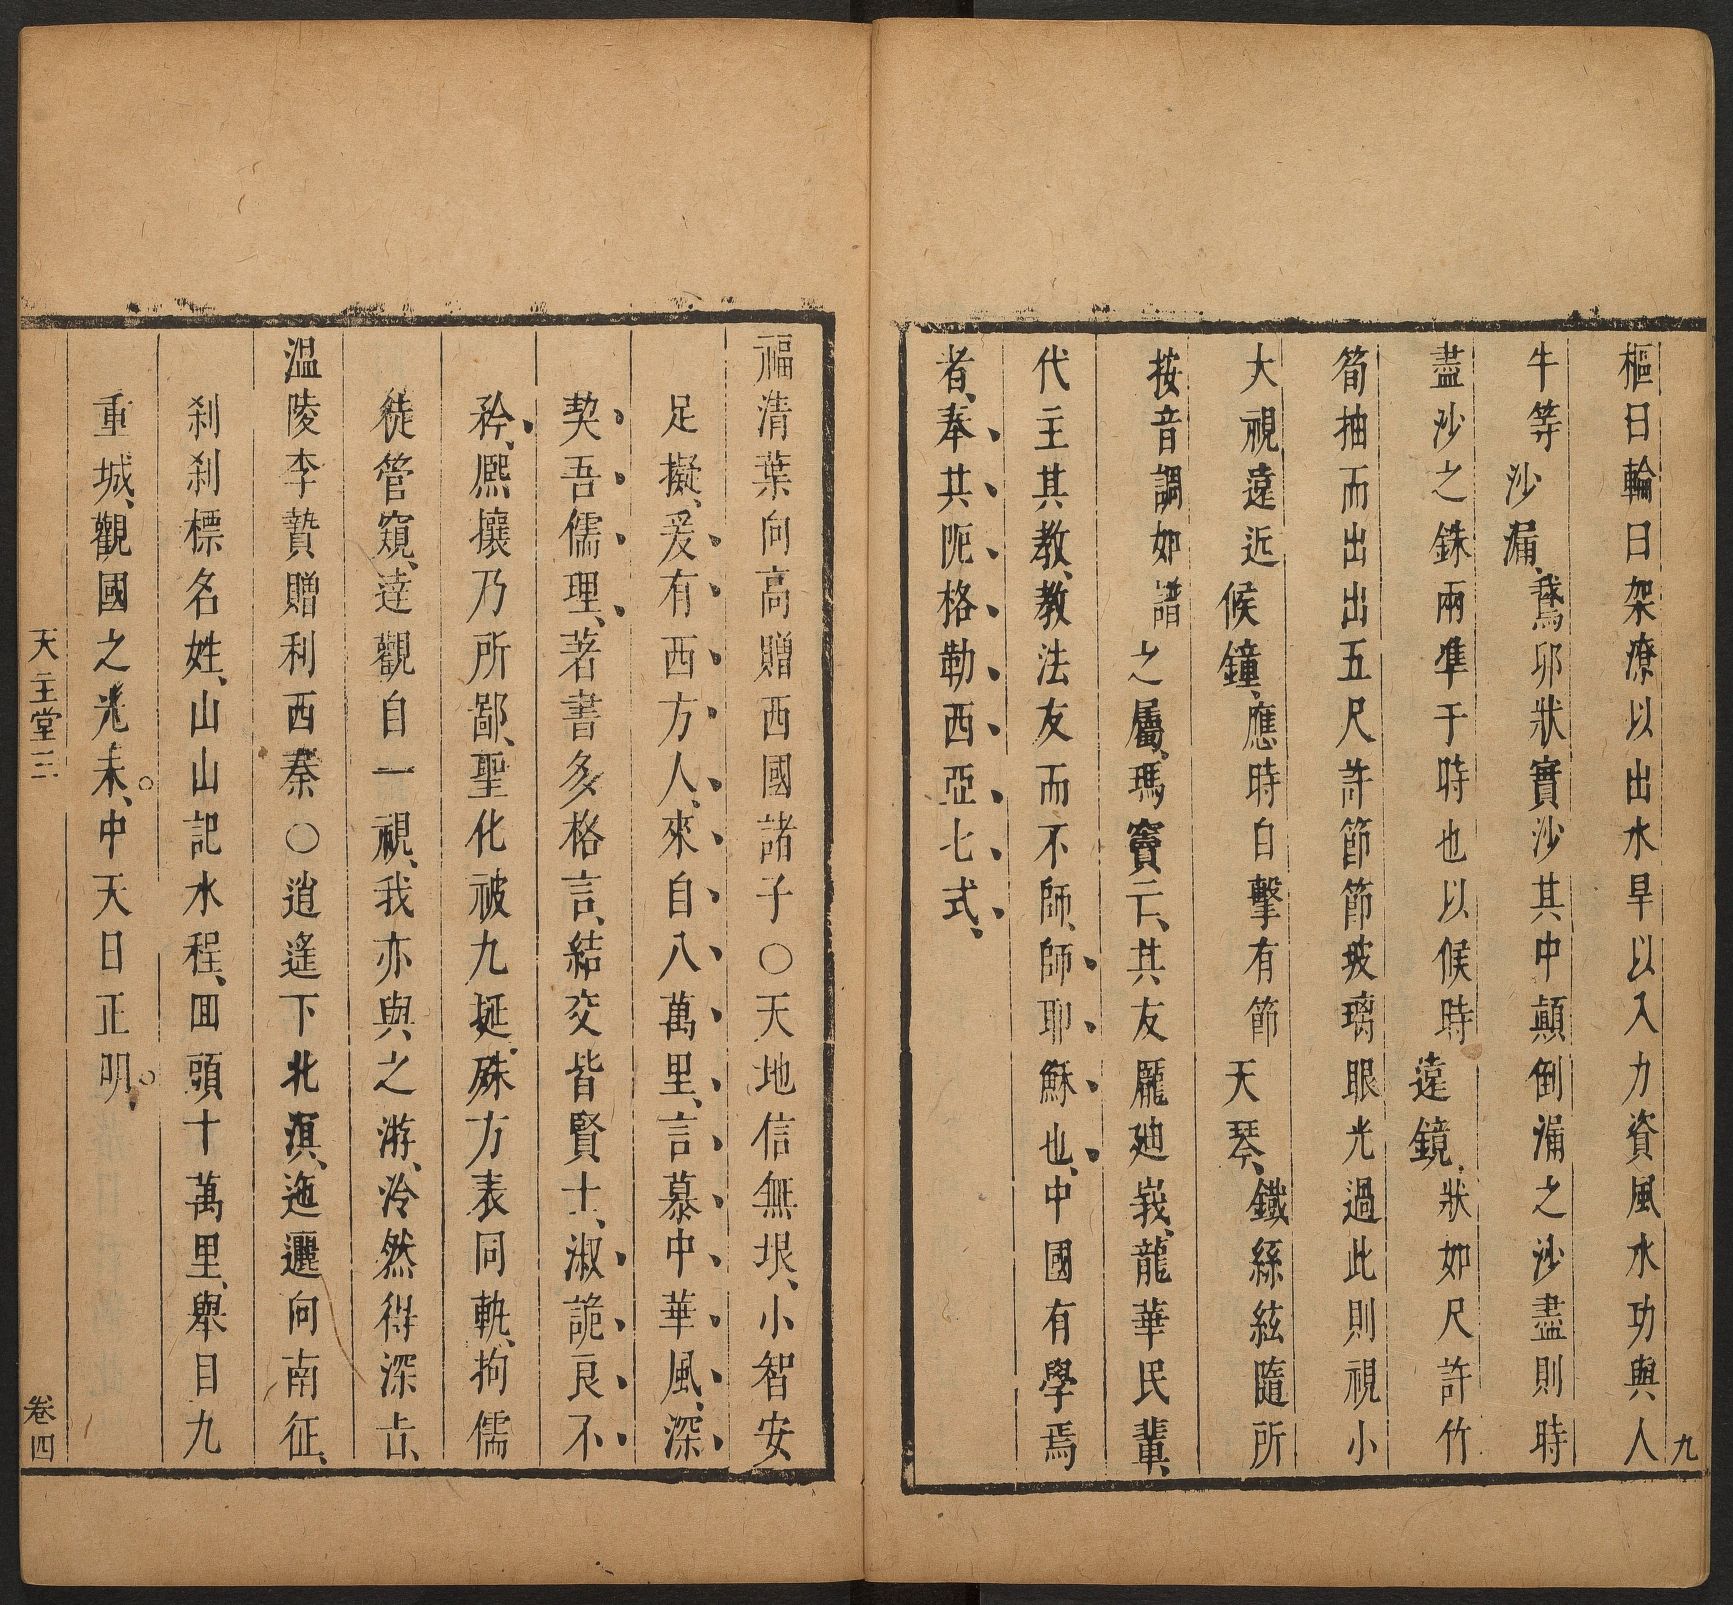 樞曰輪曰架療以出水旱以入力資風水功與人
牛等沙漏、鵞卵狀實沙其中顛倒漏之沙盡則時
盡沙之銖兩凖于時也以候時遠鏡、狀如尺許竹
筍抽而出出五尺許節節玻璃眼光過此則視小
大視遠近候鐘、應時自擊有節天琴、鐵絲絃隨所
按音調如譜之屬、瑪竇云、其友龎廸峩、龍華民輩、
代主其教、教法友而不師、師耶穌也、中國有學焉
者、奉其陁格勒西亞七式、
九
福清葉向高贈西國諸子○天地信無垠、小智安
足擬、爰有西方人、來自八萬里、言慕中華風、深
契吾儒理、著書多格言、結交皆賢士、淑詭良不
矜、熈攘乃所鄙、聖化被九埏、殊方表同軌、拘儒
徒管窺、達觀自一視、我亦與之游、泠然得深旨、
温陵李贄贈利西泰○逍遙下北溟、迤邐向南征、
刹刹標名姓、山山記水程、囬頭十萬里、舉目九
重城、觀國之光未、中天日正明、
天主堂三
卷四